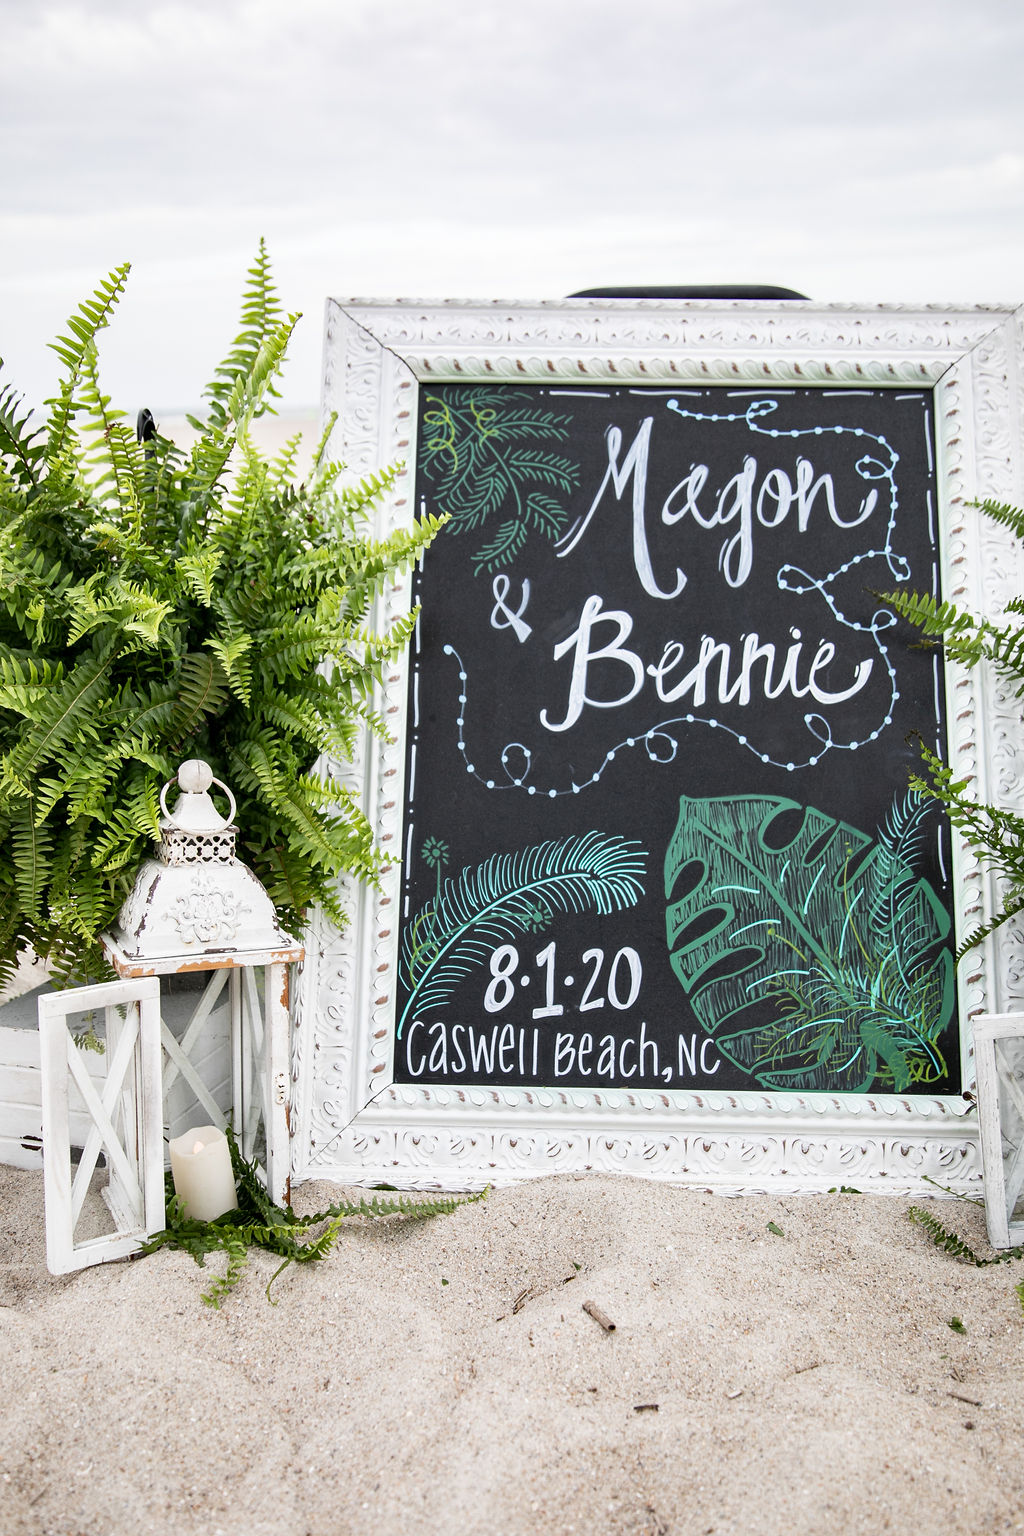 Magon
&
Bennie
8·1·20
Caswell Beach, NC